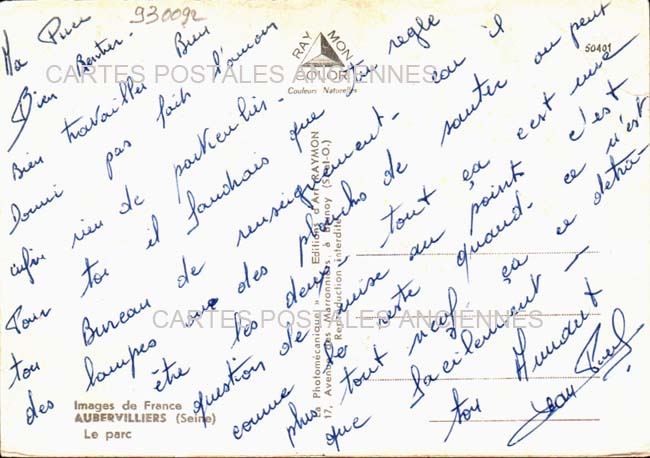 930092
Ma Puce
Bien Rentrer.
Bien travailler Bien
Dormi pas fait l'amour
enfin rien de particulier.
Pour toi il faudrais que tu règle
ton Bureau de renseignement. car il
des lampes ou des planches de sauter ou peut
être les deux. tout ça c'est une
question de mise au point. c'est
comme le reste quand ce n'est
plus tout neuf ça ce détra-
que facilement -
ton
Jean
RAYMON
COLOR
Couleurs Naturelles
50401
CARTES POSTALES ANCIENNES
CARTES POSTALES ANCIENNES
La Photomécanique » Editions d'Art RAYMON
17, Avenue des Marronniers, à Brunoy (S.-et-O.)
Reproduction interdite
Images de France
AUBERVILLIERS (Seine)
Le parc